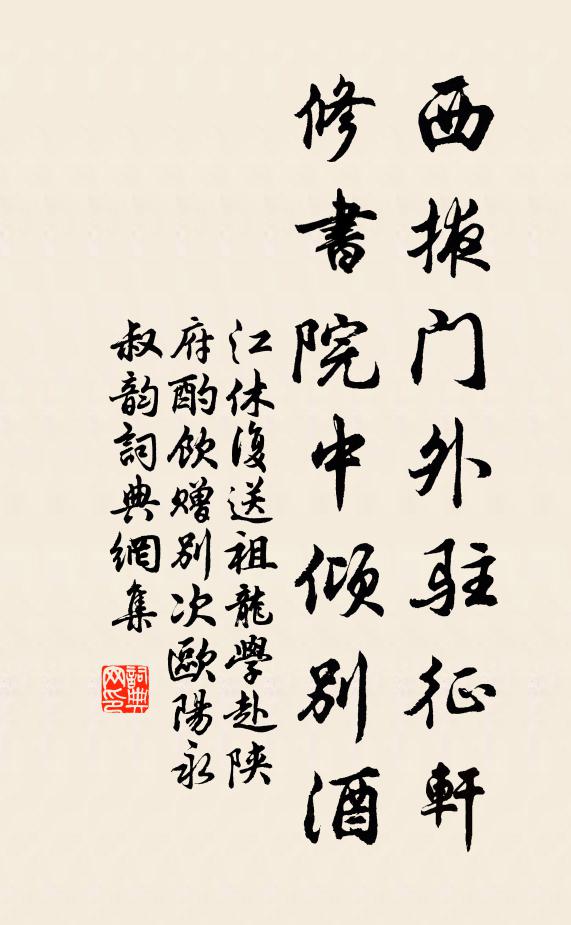 西掖门外驻征軒
修書院中倾别酒
江休復送祖龍學赴陕
府酌饮赠别次歐陽永
叔韵詞典網集
詞典网印